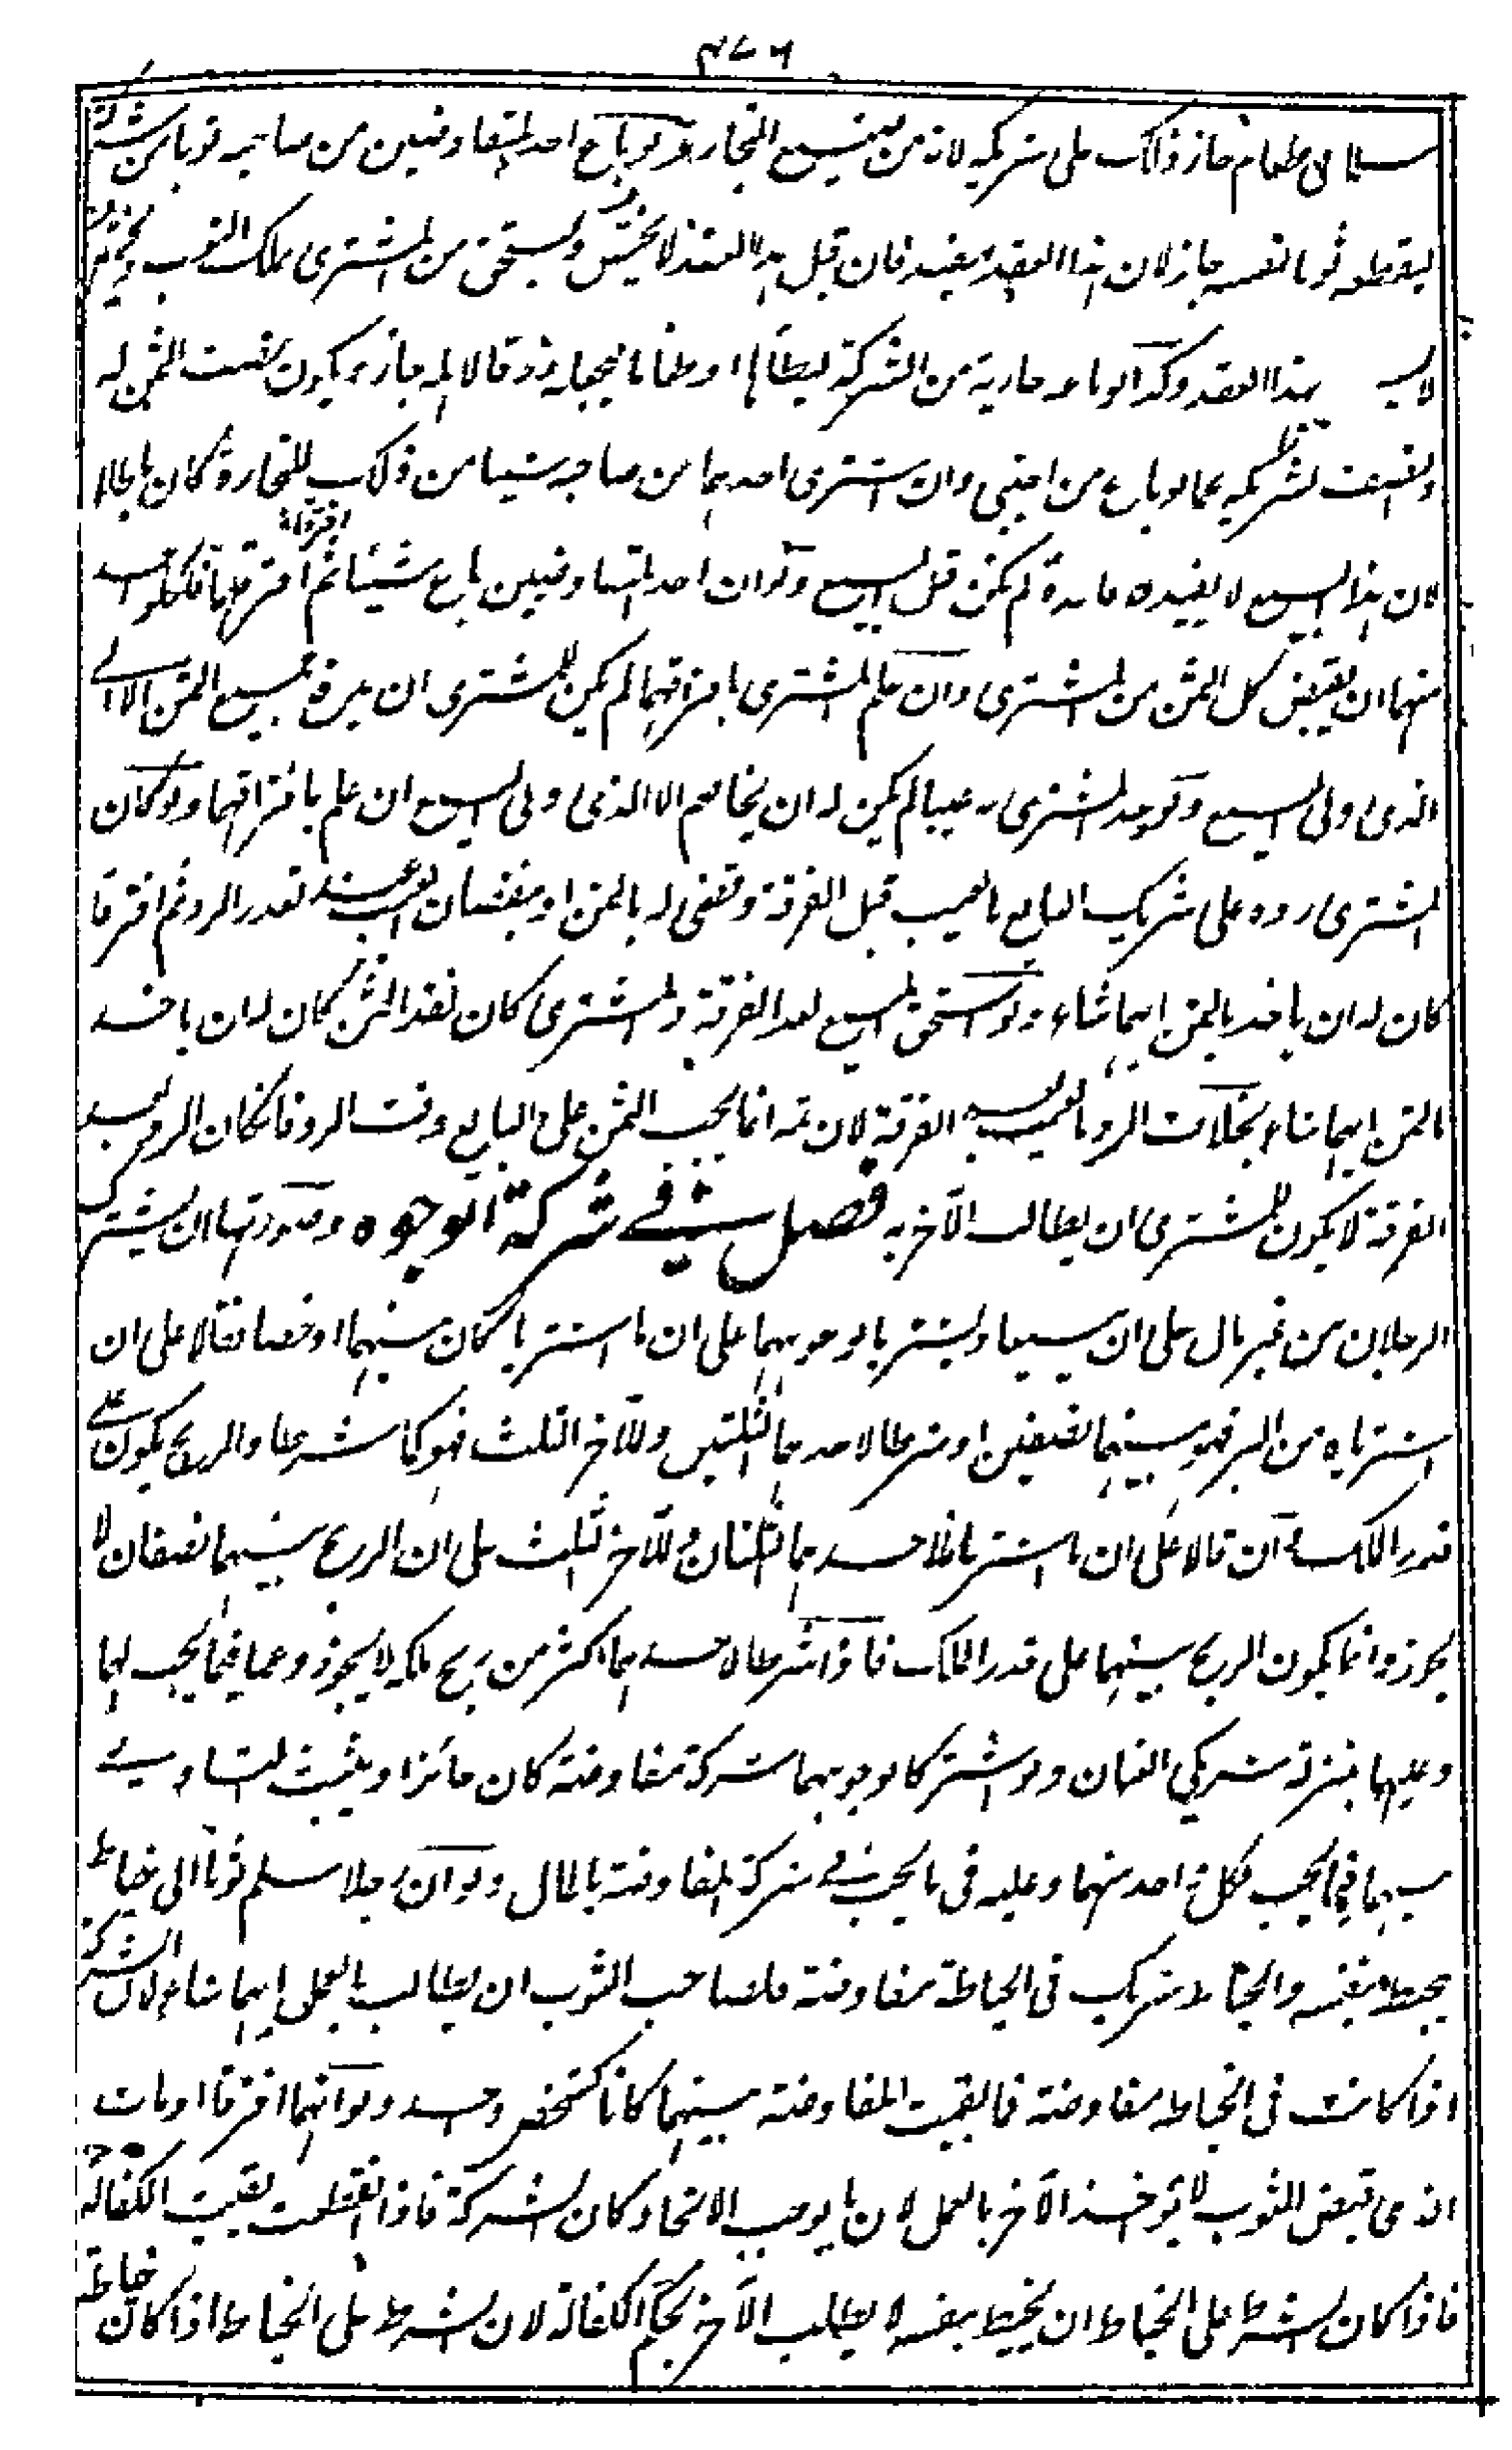 ٤٧٦
سلما في طعام جاز ذلك على شريكه لانه من صنيع التجار ولو باع احد المتفاوضين من صاحبه ثوبا من شركة
ليقطعه ثوبا لنفسه جاز لان هذا العقد مفيد فان قبل هذا العقد لا يختص ويستحق من المشتري ملك الثوب ويختص
بهذا العقد وكذا لو باعه جارية من الشركة ليطأها او طعاما يجعله رزقا لاهله جاز ويكون نصف الثمن له
والنصف لشريكه كما لو باع من اجنبي وان اشترى احدهما من صاحبه شيئا من ذلك للتجارة كان باطلا
لان هذا البيع لا يفيده فائدة لم تكن قبل البيع ولو ان احد المتفاوضين باع شيئا ثم افترقا فلكل واحد
منهما ان يقبض كل الثمن من المشتري وان علم المشتري بافتراقهما لم يكن للمشتري ان يبرء جميع الثمن الا الى
الذي ولي البيع ولو وجد المشتري به عيبا لم يكن له ان يخاصم الا الذي ولي البيع ان علم بافتراقهما ولو كان
المشتري رده على شريك البايع بالعيب قبل الفرقة وقضى له بالثمن او بنقصان العيب عند تعذر الرد ثم افترقا
كان له ان ياخذ بالثمن ايهما شاء ولو استحق المبيع بعد الفرقة والمشتري كان نقد الثمن كان له ان ياخذ
بالثمن ايهما شاء بخلاف الرد بالعيب بعد الفرقة لان ثمه انما يجب الثمن على البايع وقت الرد فاذا كان الرد بعد
الفرقة لا يكون للمشتري ان يطالب الآخر به فصل في شركة الوجوه وصورتها ان يشترك
الرجلان من غير مال على ان يبيعا ويشتريا بوجوههما على ان ما اشتريا كان بينهما او خصا فقالا على ان
اشترياه من البر فهو بينهما نصفين او شرطا لاحدهما الثلثين وللآخر الثلث فهو كما شرطا والربح يكون على
قدر الملك وان قالا على ان ما اشتريا فلاحدهما الثلثان وللآخر الثلث على ان الربح بينهما نصفان لا
يجوز وانما يكون الربح بينهما على قدر الملك فاذا شرطا لاحدهما اكثر من ربح ملكه لا يجوز وهما فيما يجب لهما
وعليهما بمنزلة شريكي العنان ولو اشتركا بوجوههما شركة مفاوضة كان جائزا ويثبت التساوي
بينهما فيما يجب لكل واحد منهما وعليه في ما يجب في شركة المفاوضة بالمال ولو ان رجلا سلم ثوبا الى خياط
يخيطه بنفسه والخياط شريك في الخياطة مفاوضة فلصاحب الثوب ان يطالب بالعمل ايهما شاء لان الشركة
اذا كانت في الخياطة مفاوضة فما بقيت المفاوضة بينهما كانا كشخص واحد ولو انهما افترقا او مات
الذي قبض الثوب لا يؤخذ الآخر بالعمل لان ما يوجب الاتحاد كان الشركة فاذا انقطعت بقيت الكفالة
فاذا كان الشرط على الخياط ان يخيط بنفسه لا يطالب الآخر بحكم الكفالة لان الشرط على الخياط اذا كان خياطة